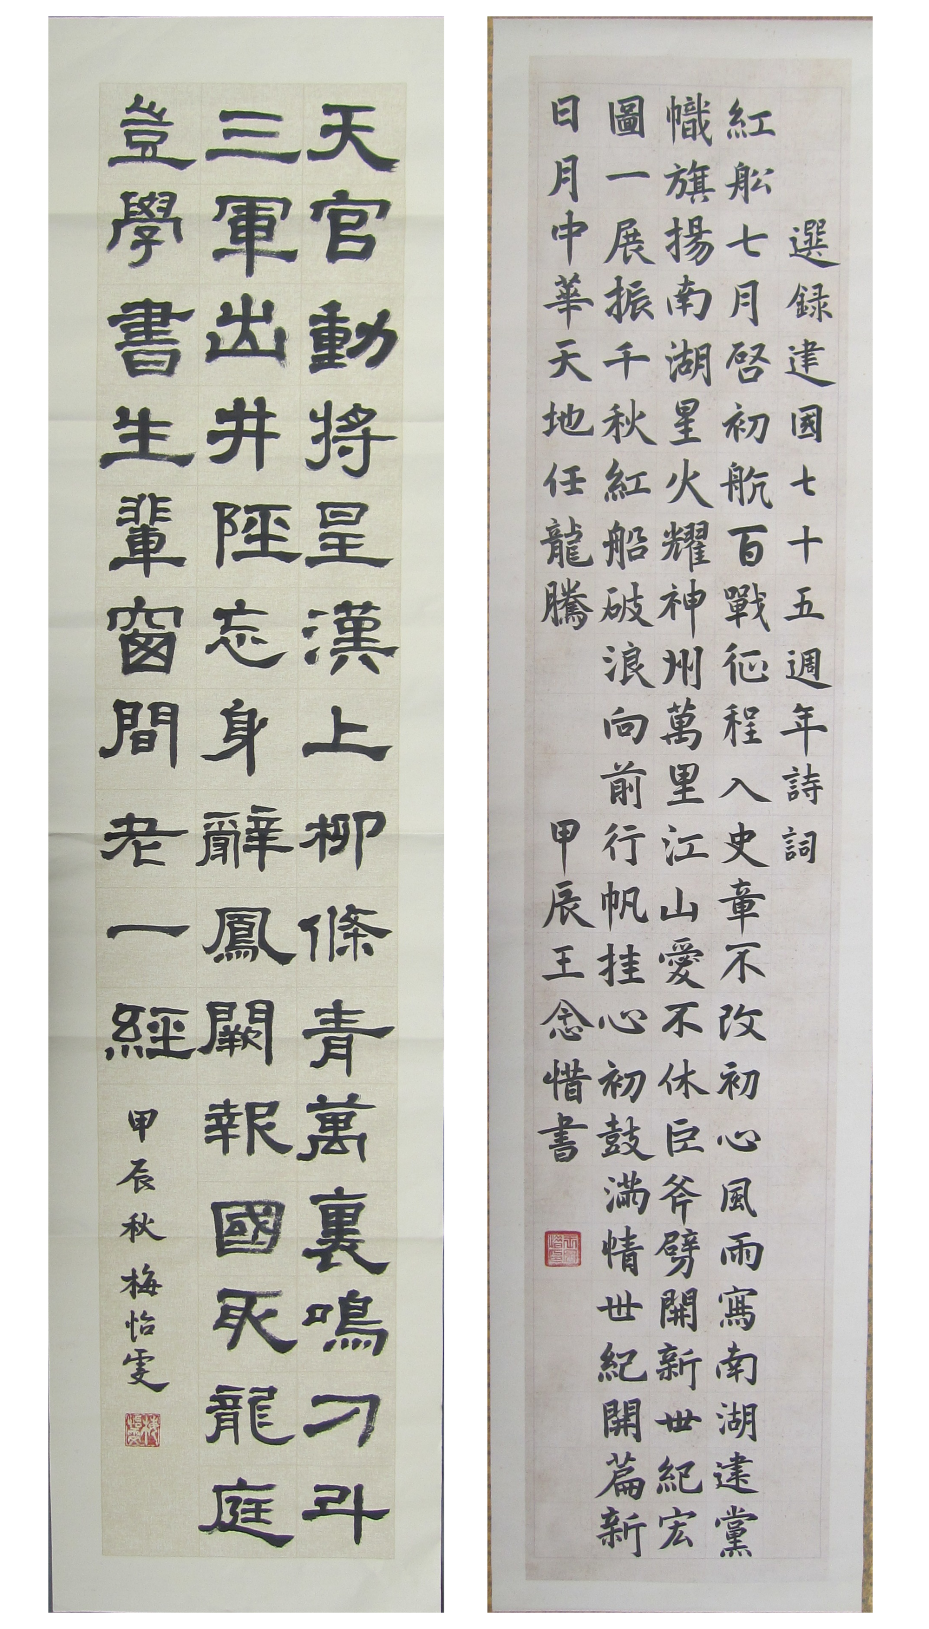 天官動將星漢上柳條青萬裏鳴刁斗
三軍出井陘忘身辭鳳闕報國死龍庭
豈學書生輩窗間老一經
甲辰秋 梅怡雯
選録建國七十五週年詩詞
紅船七月啓初航百戰征程入史章不改初心風雨寫南湖建黨
幟旗揚南湖星火耀神州萬里江山愛不休巨斧劈開新世紀宏
圖一展振千秋紅船破浪向前行帆挂心初鼓滿情世紀開篇新
日月中華天地任龍騰
甲辰王念惜書